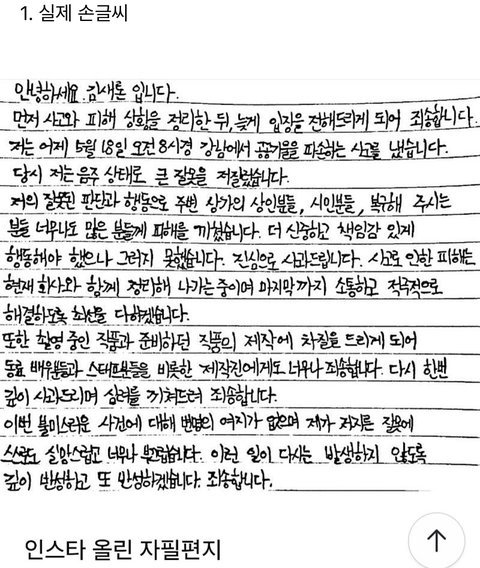 1. 실제 손글씨
안녕하세요. 김새론 입니다.
먼저 사고와 피해 상황을 정리한 뒤, 늦게 입장을 전해드리게 되어 죄송합니다.
저는 어제 5월 18일 오전 8시경 강남에서 공공기물을 파손하는 사고를 냈습니다.
당시 저는 음주 상태로 큰 잘못을 저질렀습니다.
저의 잘못된 판단과 행동으로 주변 상가의 상인분들, 시민분들, 복구해 주시는
분들 너무나도 많은 분들께 피해를 끼쳤습니다. 더 신중하고 책임감 있게
행동해야 했으나 그러지 못했습니다. 진심으로 사과드립니다. 사고로 인한 피해는
현재 회사와 함께 정리해 나가는 중이며 마지막까지 소통하고 적극적으로
해결하도록 최선을 다하겠습니다.
또한 촬영 중인 작품과 준비하던 작품의 제작에 차질을 드리게 되어
동료 배우분들과 스태프분들을 비롯한 제작진에게도 너무나 죄송합니다. 다시 한번
깊이 사과드리며 심려를 끼쳐드려 죄송합니다.
이번 불미스러운 사건에 대해 변명의 여지가 없으며 제가 저지른 잘못에
스스로도 실망스럽고 너무나 부끄럽습니다. 이런 일이 다시는 발생하지 않도록
깊이 반성하고 또 반성하겠습니다. 죄송합니다.
인스타 올린 자필편지